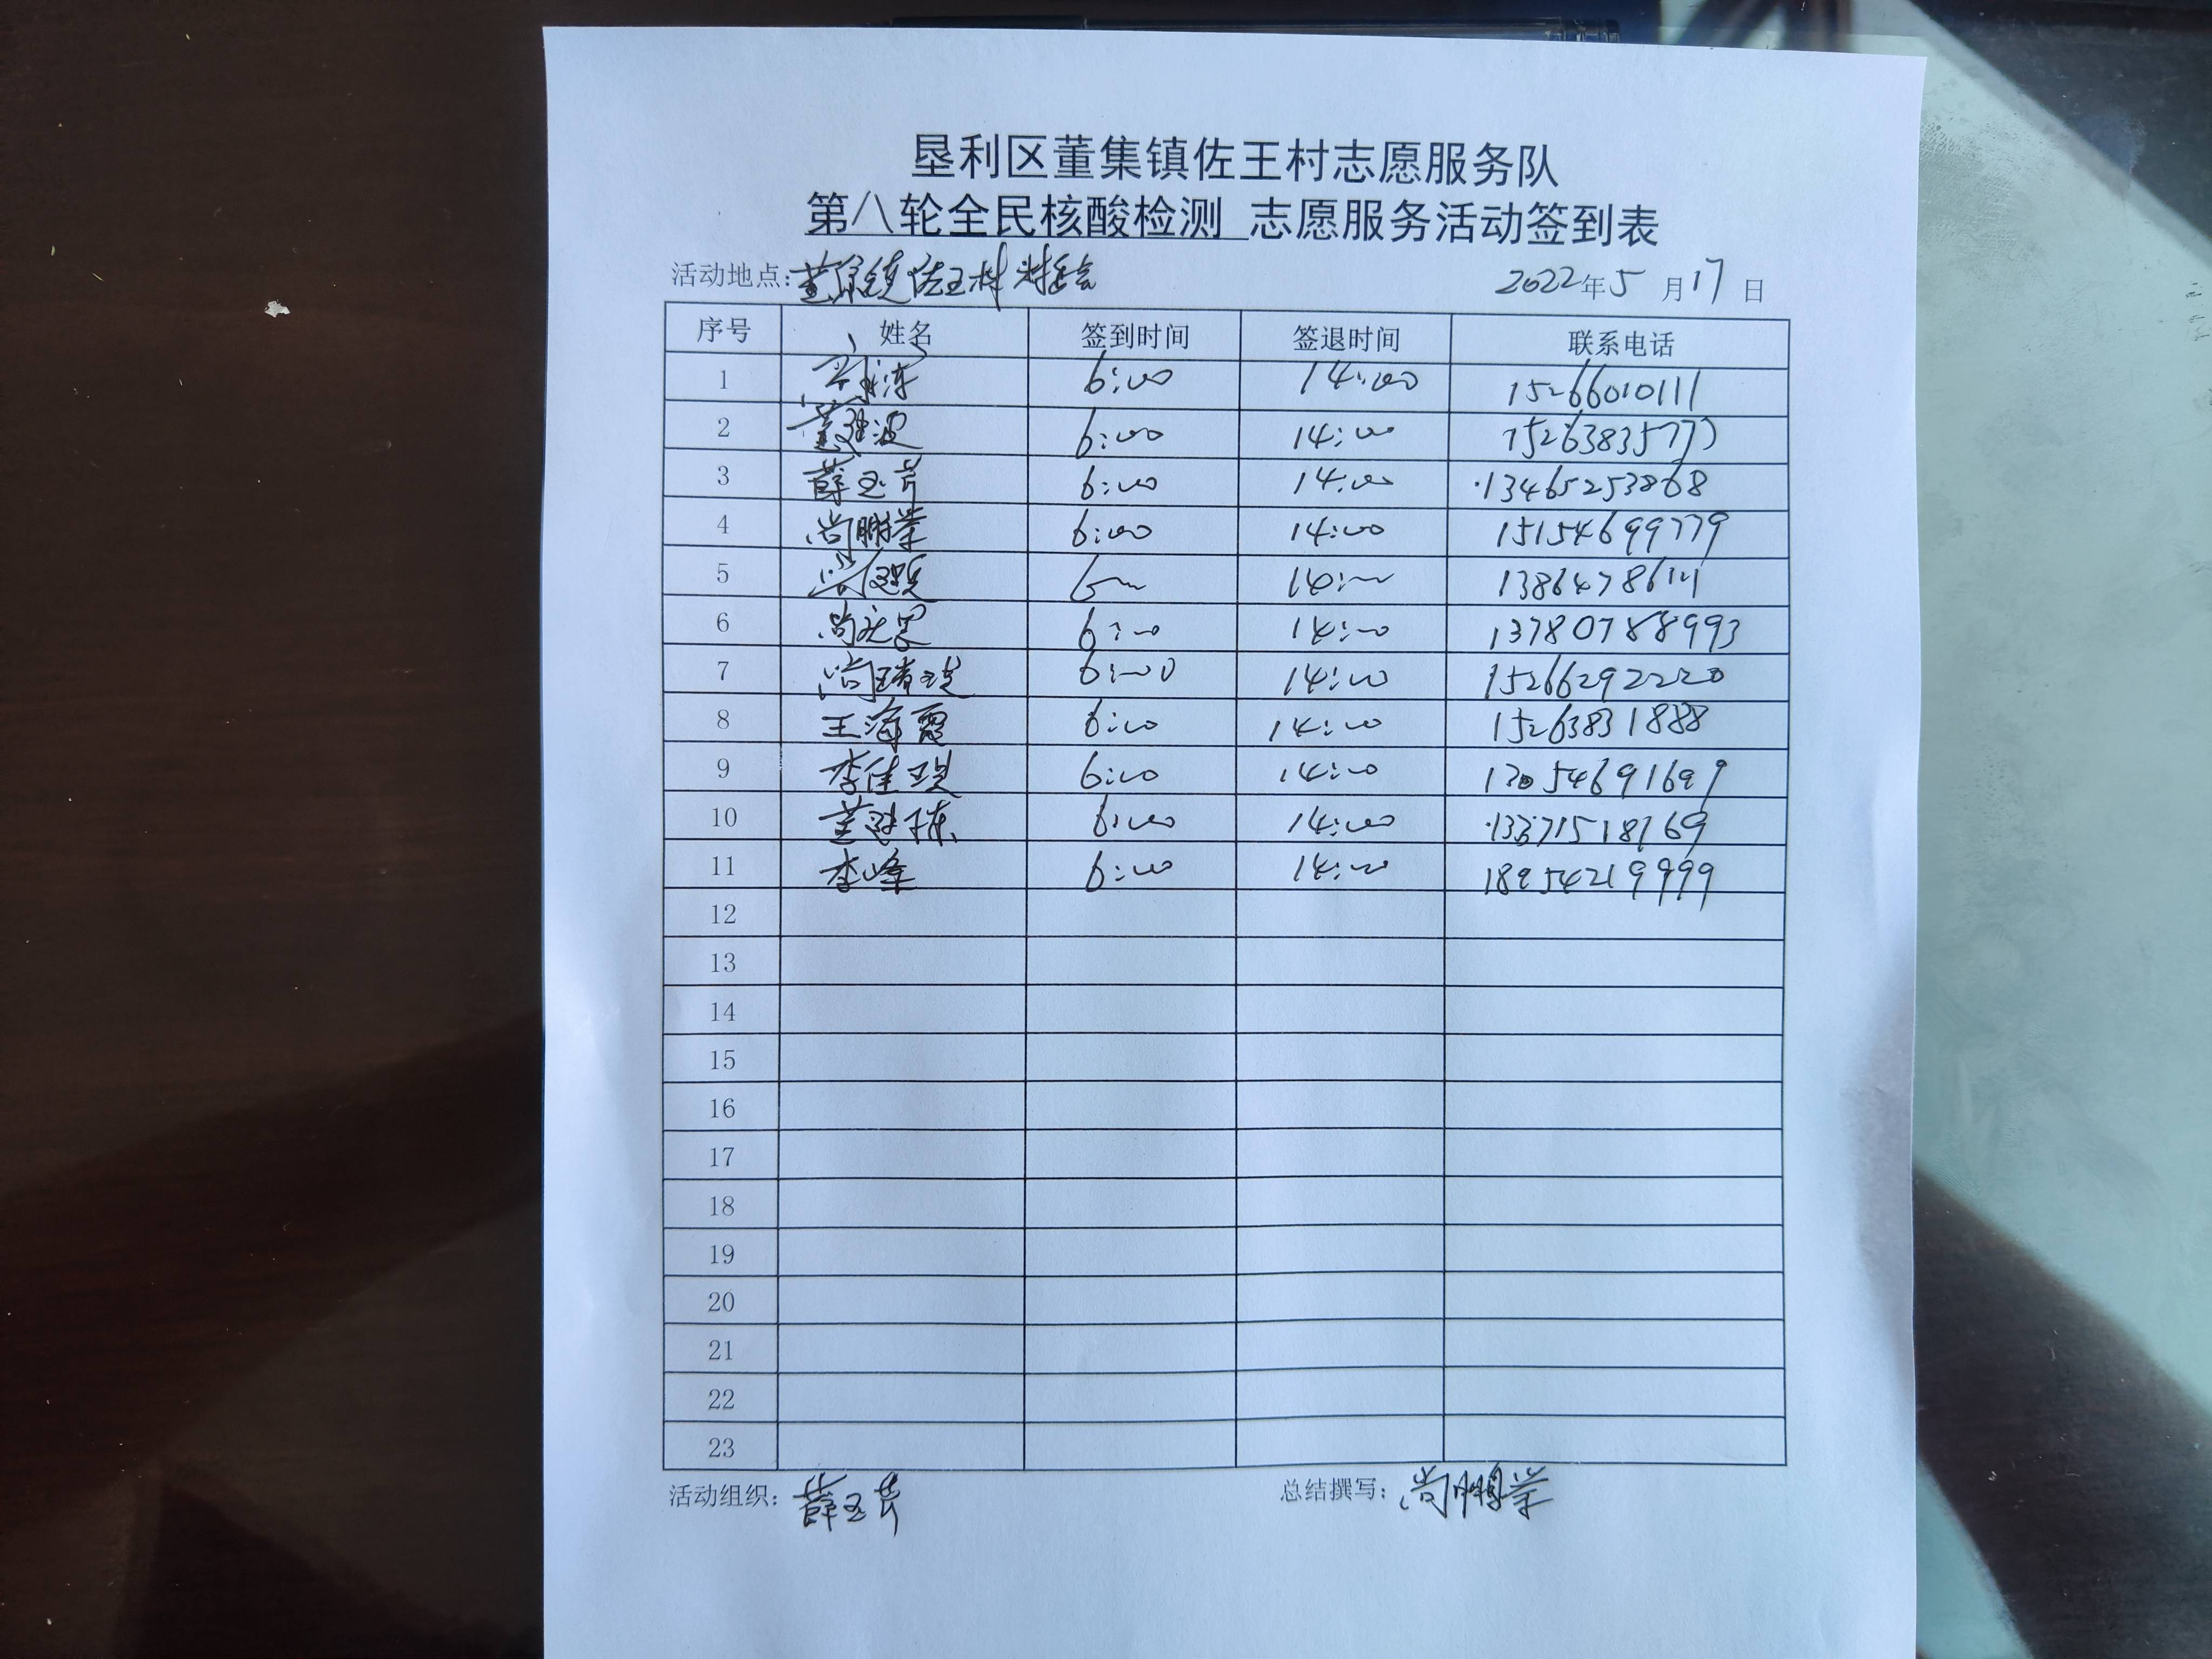 垦利区董集镇佐王村志愿服务队
第八轮全民核酸检测 志愿服务活动签到表
活动地点：董集镇佐王村村委会 2022年5月17日
序号 姓名 签到时间 签退时间 联系电话
1 6:00 14:00 15266010111
2 6:00 14:00 15263835777
3 薛玉芹 6:00 14:00 13465253868
4 尚鹏举 6:00 14:00 15154699779
5 14:00
6 6:00 14:00 13780788993
7 6:00 14:00 15266292220
8 王海霞 6:00 14:00 15263831888
9 6:00 14:00
10 董建栋 6:00 14:00
11 李峰 6:00 14:00 18954219999
12
13
14
15
16
17
18
19
20
21
22
23
活动组织：薛玉芹 总结撰写：尚鹏举